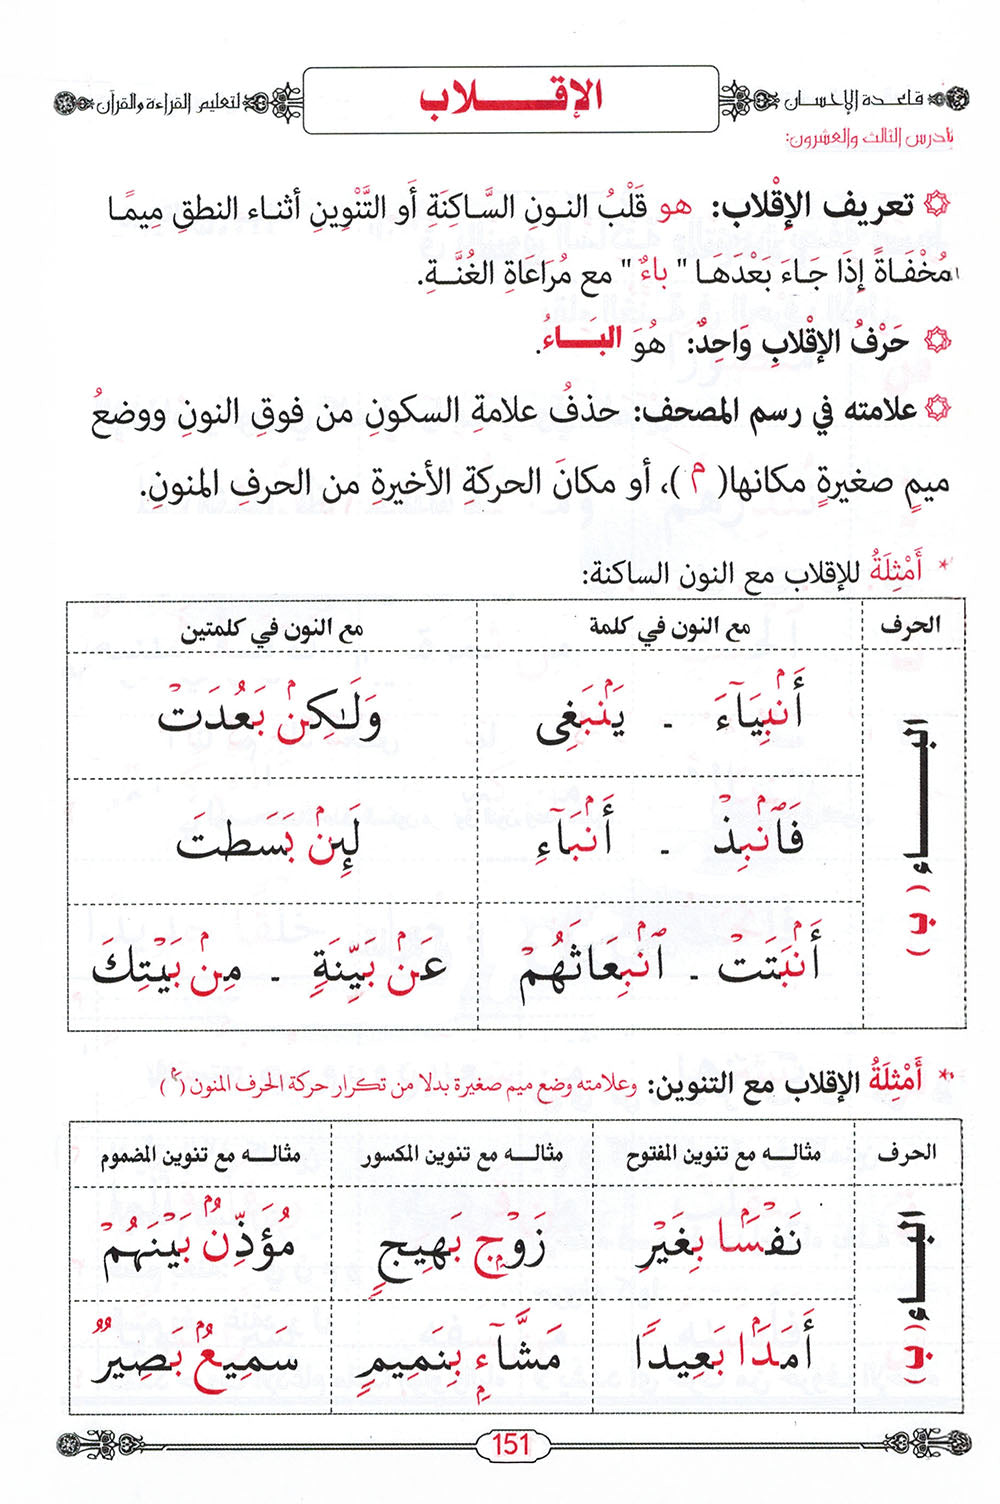 قاعدة الإحسان
الإقـلاب
لتعليم القراءة والقرآن
الدرس الثالث والعشرون:
تعريف الإقْلاب: هو قَلْبُ النونِ السَّاكِنَةِ أَو التَّنْوِينِ أثناء النطقِ مِيمًا
مُخْفَاةً إِذَا جَاءَ بَعْدَهَا " باءٌ " مع مُرَاعَاةِ الغُنَّةِ.
حَرْفُ الإقْلابِ وَاحِدٌ: هُوَ البَاءُ.
علامته في رسم المصحف: حذفُ علامةِ السكونِ من فوقِ النونِ ووضعُ
ميمٍ صغيرةٍ مكانها( م )، أو مكانَ الحركةِ الأخيرةِ من الحرفِ المنونِ.
* أَمْثِلَةُ للإقلاب مع النون الساكنة:
الحرف مع النون في كلمة مع النون في كلمتين
البـاء (ب)
أَنۢبِيَآءَ - يَنۢبَغِى وَلَـٰكِنۢ بَعُدَتْ
فَٱنۢبِذْ - أَنۢبَآءِ لَئِنۢ بَسَطتَ
أَنۢبَتَتْ - ٱنۢبِعَاثَهُمْ عَنۢ بَيِّنَةٍ - مِنۢ بَيْتِكَ
* أَمْثِلَةُ الإقلاب مع التنوين: وعلامته وضع ميم صغيرة بدلا من تكرار حركة الحرف المنون (م)
الحرف مثاله مع تنوين المفتوح مثاله مع تنوين المكسور مثاله مع تنوين المضموم
البـاء (ب)
نَفْسَۢا بِغَيْرِ زَوْجِۭ بَهِيجٍ مُؤَذِّنُۢ بَيْنَهُمْ
أَمَدَۢا بَعِيدًا مَشَّآءِۭ بِنَمِيمٍ سميعُۢ بَصِيرٌ
151